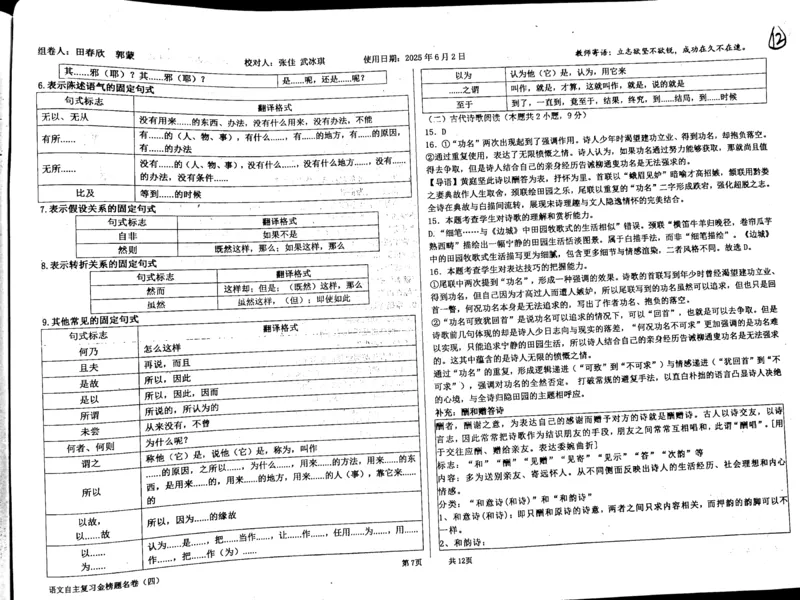 ⑫
组卷人：田春欣 郭蒙
校对人：张佳 武冰琪
使用日期：2025年6月2日
教师寄语：立志欲坚不欲锐，成功在久不在速。
其……邪（耶）？其……邪（耶）？ 是……呢，还是……呢？
6.表示陈述语气的固定句式
句式标志 翻译格式
无以、无从 没有用来……的东西、办法，没有什么用来，没有办法，不能
有所…… 有……的（人、物、事），有什么……，有……的地方，有……的原因，
有……的办法
无所…… 没有……的（人、物、事），没有什么……，没有什么地方……，没有……
的办法，没有条件……
比及 等到……的时候
7.表示假设关系的固定句式
句式标志 翻译格式
自非 如果不是
然则 既然这样，那么；如果这样，那么
8.表示转折关系的固定句式
句式标志 翻译格式
然而 这样却；但是；（既然）这样，那么
虽然 虽然这样，（但）；即使如此
9.其他常见的固定句式
句式标志 翻译格式
何乃 怎么这样
且夫 再说，而且
是故 所以，因此
是以 所以，因此，因而
所谓 所说的，所认为的
未尝 从来没有，不曾
何者、何则 为什么呢？
谓之 称他（它）是，说他（它）是，称为，叫作
所以 ……的原因，之所以……，为什么……，用来……的方法，用来……的东
西，是用来……的，用来……的地方，用来……的人（事），靠它来……
的
以故，
以……故 所以，因为……的缘故
以……
为…… 认为……是……，把……当作……，让……作……，任用……为……，用……
作……，把……作（为）……
语文自主复习金榜题名卷（四）
以为 认为他（它）是，认为，用它来
……之谓 叫作，就是，才算，这就叫作，就是，说的就是
至于 到了，一直到，竟至于，结果，终究，到……结局，到……时候
（二）古代诗歌阅读（本题共2小题，9分）
15. D
16. ①“功名”两次出现起到了强调作用。诗人少年时渴望建功立业、得到功名，却抱负落空。
②通过重复使用，表达了无限愤慨之情。诗人认为，如果功名通过努力能够获取，那就尚且值
得去争取，但是诗人结合自己的亲身经历告诫柳通叟功名是无法强求的。
【导语】黄庭坚此诗以酬答为表，抒怀为里。首联以“蛾眉见妒”暗喻才高招嫉，颔联用黔娄
之妻典故作人生取舍，颈联绘田园之乐，尾联以重复的“功名”二字形成跌宕，强化超脱之志。
全诗在典故与白描间流转，展现宋诗理趣与文人隐逸情怀的完美结合。
15. 本题考查学生对诗歌的理解和赏析能力。
D.“细笔……与《边城》中田园牧歌式的生活相似”错误。颈联“横笛牛羊归晚径，卷帘瓜芋
熟西畴”描绘出一幅宁静的田园生活恬淡图景，属于白描手法，而非“细笔描绘”。《边城》
中的田园牧歌式生活描写更为细腻，包含更多细节与情感渲染，二者风格不同。故选D。
16. 本题考查学生对表达技巧的把握能力。
①尾联中两次提到“功名”，形成一种强调的效果，诗歌的首联写到年少时曾经渴望建功立业、
得到功名，但自己因为才高过人而遭人嫉妒，所以尾联写到的功名虽然可以追求，但也只是回
首一瞥，何况功名本身是无法追求的，写出了作者功名、抱负的落空。
②“功名可致犹回首”是说功名可以追求的情况下，可以“回首”，也就是可以去争取。但是
诗歌前几句体现的却是诗人少日志向与现实的落差，“何况功名不可求”更加强调的是功名难
以实现，只能追求宁静的田园生活，所以诗人结合自己的亲身经历告诫柳通叟功名是无法强求
的。这其中蕴含的是诗人无限的愤慨之情。
通过“功名”的重复，形成逻辑递进（“可致”到“不可求”）与情感递进（“犹回首”到“不
可求”），强调对功名的全然否定， 打破常规的避复手法，以直白朴拙的语言凸显诗人决绝
的心境，与全诗归隐田园的主题相呼应。
补充：酬和赠答诗
酬者，酬谢之意，为表达自己的感谢而赠予对方的诗就是酬赠诗。古人以诗交友，以诗
言志，因此常常把诗歌作为结识朋友的手段，朋友之间常常互相唱和，此谓“酬唱”。[用
于交往应酬、赠给亲友。表达委婉曲折]
标志：“和”“酬”“见赠”“见寄”“见示”“答”“次韵”等
内容：多为送别亲友、寄远怀人。从不同侧面反映出诗人的生活经历、社会理想和内心
情感。
分类：“和意诗(和诗)”和“和韵诗”
1、和意诗(和诗)：即只酬和原诗的诗意，两者之间只求内容相关，而押韵的韵脚可以不
一样。
2、和韵诗：
第7页 共12页